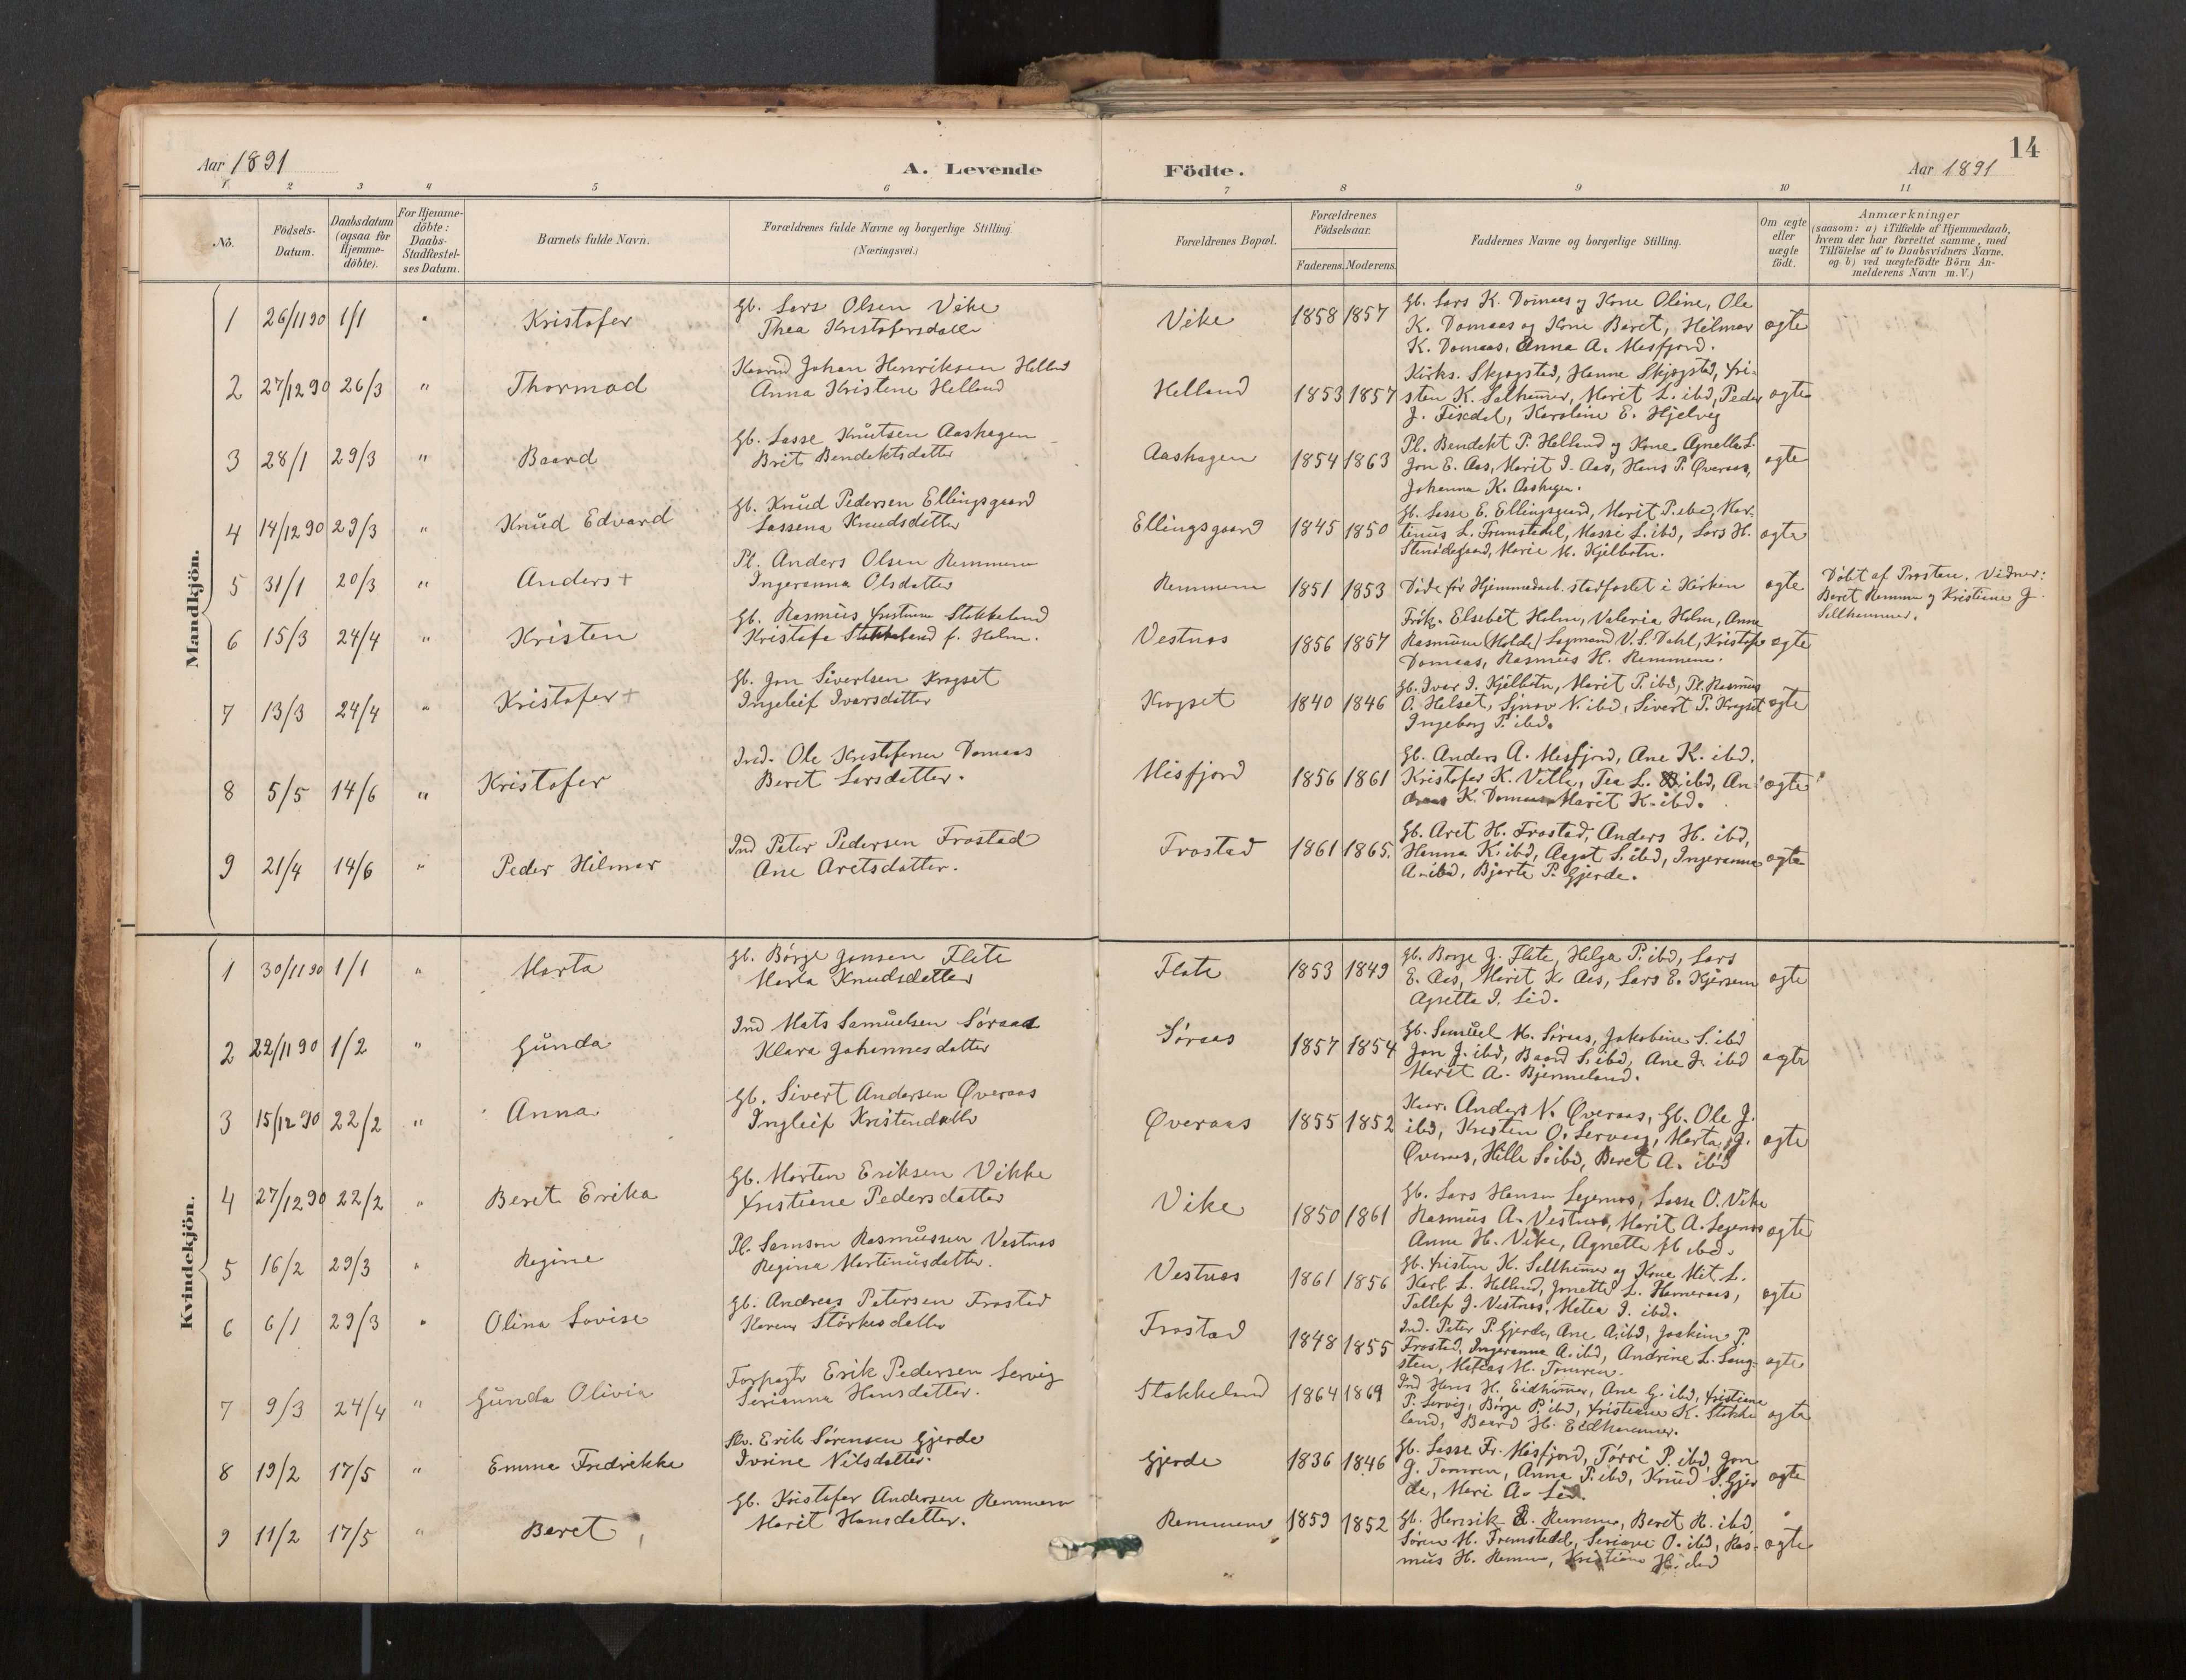 14
Aar 1891
A. Levende
Födte.
Aar 1891
1 2 3 4 5 6 7 8 9 10 11
Nô.
Födsels-Datum.
Daabsdatum (ogsaa for Hjemme-döbte).
For Hjemme-döbte: Daabs-Stadfæstel-ses Datum.
Barnets fulde Navn.
Forældrenes fulde Navne og borgerlige Stilling. (Næringsvei.)
Forældrenes Bopæl.
Forældrenes Födselsaar.
Faderens. Moderens.
Faddernes Navne og borgerlige Stilling.
Om ægte eller uægte födt.
Anmærkninger
(saasom: a) i Tilfælde af Hjemmedaab, hvem der har forrettet samme, med Tilföielse af to Daabsvidners Navne, og b) ved uægtefödte Börn An-melderens Navn m. V.)
Mandkjön.
1 26/11 90 1/1 " Kristofer
Gb. Lars Olsen Vike
Thea Kristofersdatter
Vike 1858 1857
Gb. Lars K. Domaas og Kone Oline, Ole
K. Domaas og Kone Beret, Hilmar
K. Domaas, Anna A. Misfjord.
ægte
2 27/12 90 26/3 " Thormod
Kaarmd Johan Henriksen Helland
Anna Kristine Helland
Helland 1853 1857
Kirks. Skjøgstad, Hanne Skjøgstad, Kri-
sten K. Salthammer, Marit L. ibd, Peder
J. Fixdal, Karoline E. Hjelvig
ægte
3 28/1 29/3 " Baard
Gb. Lasse Knutsen Aashagen
Brit Bendektsdatter
Aashagen 1854 1863
Pl. Bendekt P. Helland og Kone Agnette L.
Jon E. Aas, Marit I. Aas, Hans P. Øveraas,
Johanna K. Aashagen.
ægte
4 14/12 90 29/3 " Knud Edvard
Gb. Knud Pedersen Ellingsgaard
Lassena Knudsdatter
Ellingsgaard 1845 1850
Gb. Lasse E. Ellingsgaard, Marit P. ibd, Mar-
tinus L. Fremstedal, Massi L. ibd, Lars H.
Stenødegaard, Marie M. Kjelbotn.
ægte
5 31/1 20/3 " Anders +
Pl. Anders Olsen Remmem
Ingeranna Olsdatter
Remmem 1851 1853
Døde før Hjemmedaab. stadfæstet i Kirken
ægte
Døbt af Presten. Vidner:
Beret Remmem og Kristine J.
Sellhammer.
6 15/3 24/4 " Kristen
Gb. Rasmus Kristensen Stokkeland
Kristofa Stokkeland f. Holm.
Vestnæs 1856 1857
Frøk. Elsebet Holm, Valeria Holm, Anna
Rasmussen (Molde) Lagmand V. S. Dahl, Kristofer
Domaas, Rasmus H. Remmem.
ægte
7 13/3 24/4 " Kristofer +
Gb. Jon Sivertsen Krogset
Ingeleif Ivarsdatter
Krogset 1840 1846
Gb. Ivar I. Kjelbotn, Marit P. ibd, Pl. Rasmus
O. Helset, Synøv N. ibd, Sivert P. Krogset
Ingeborg P. ibd.
ægte
8 5/5 14/6 " Kristofer
Ind. Ole Kristofersen Domaas
Beret Larsdatter.
Misfjord 1856 1861
Gb. Anders A. Misfjord, Ane K. ibd,
Kristofer K. Villa, Tea L. ibd, An-
dreas K. Domaas Marit K. ibd.
ægte
9 21/4 14/6 " Peder Hilmar
Ind Peter Pedersen Frostad
Ane Aretsdatter.
Frostad 1861 1865.
Gb. Aret H. Frostad, Anders H. ibd,
Hanna K. ibd, Aagot S. ibd, Ingeranna
A. ibd, Bjarte P. Gjerde.
ægte
Kvindekjön.
1 30/11 90 1/1 " Marta
Gb. Børge Jonsen Flate
Marta Knudsdatter
Flate 1853 1849
Gb. Børge J. Flate, Helga P. ibd, Lars
E. Aas, Marit K. Aas, Lars E. Kjersem
Agnette I. Lid.
ægte
2 22/11 90 1/2 " Gunda
Ind Mats Samuelsen Søraas
Klara Johannesdatter
Søraas 1857 1854
Gb. Samuel M. Søraas, Jakobine S. ibd
Jon J. ibd, Baard S. ibd, Ane J. ibd
Marit A. Bjermeland.
ægte
3 15/12 90 22/2 " Anna
Gb. Sivert Andersen Øveraas
Ingleif Kristendatter
Øveraas 1855 1852
Kaar. Anders N. Øveraas, Gb. Ole J.
ibd, Kristen O. Lervaag, Marta J.
Øveraas, Hille S. ibd, Beret A. ibd
ægte
4 27/12 90 22/2 " Beret Erika
Gb. Morten Eriksen Vikke
Kristiane Pedersdatter
Vike 1850 1861
Gb. Lars Hansen Legernæs, Lasse O. Vike
Rasmus A. Vestnæs, Marit A. Legernæs
Anne H. Vike, Agnette M. ibd.
ægte
5 16/2 29/3 " Regine
Pl. Samson Rasmussen Vestnæs
Regina Martinusdatter.
Vestnæs 1861 1856
Gb. Kristen K. Sellhammer og Kone Mit L.
Karl L. Helland, Jonette L. Hameraas,
Tollef J. Vestnæs, Matea I. ibd.
ægte
6 6/1 29/3 " Olina Lovise
Gb. Andreas Petersen Frostad
Karen Størkesdatter
Frostad 1848 1855
Ind. Peter P. Gjerde, Ane A. ibd, Joakim P.
Frostad, Ingeranna A. ibd, Andrine L. Saug-
sten, Matias M. Tomren.
ægte
7 9/3 24/4 " Gunda Olivia
Forpagtr Erik Pedersen Lervig
Serianna Hansdatter.
Stokkeland 1864 1869
Ind Hans H. Eidhammer, Ane G. ibd, Kristiane
P. Lervig, Børge P. ibd, Kristiane K. Stokke-
land, Baard H. Eidhammer.
ægte
8 19/2 17/5 " Emma Fredrikke
Erik Sørensen Gjerde
Ivrine Nilsdatter.
Gjerde 1836 1846
Gb. Lasse Fr. Misfjord, Tørri P. ibd, Jon
J. Tomren, Anna P. ibd, Knud S. Gjer-
de, Mari A. Lid.
ægte
9 11/2 17/5 " Beret
Gb. Kristofer Andersen Remmem
Marit Hansdatter.
Remmem 1859 1852
Gb. Henrik R. Remmem, Beret R. ibd
Søren H. Fremstedal, Seriane O. ibd, Ras-
mus H. Remmem, Kristiane H. ibd
ægte